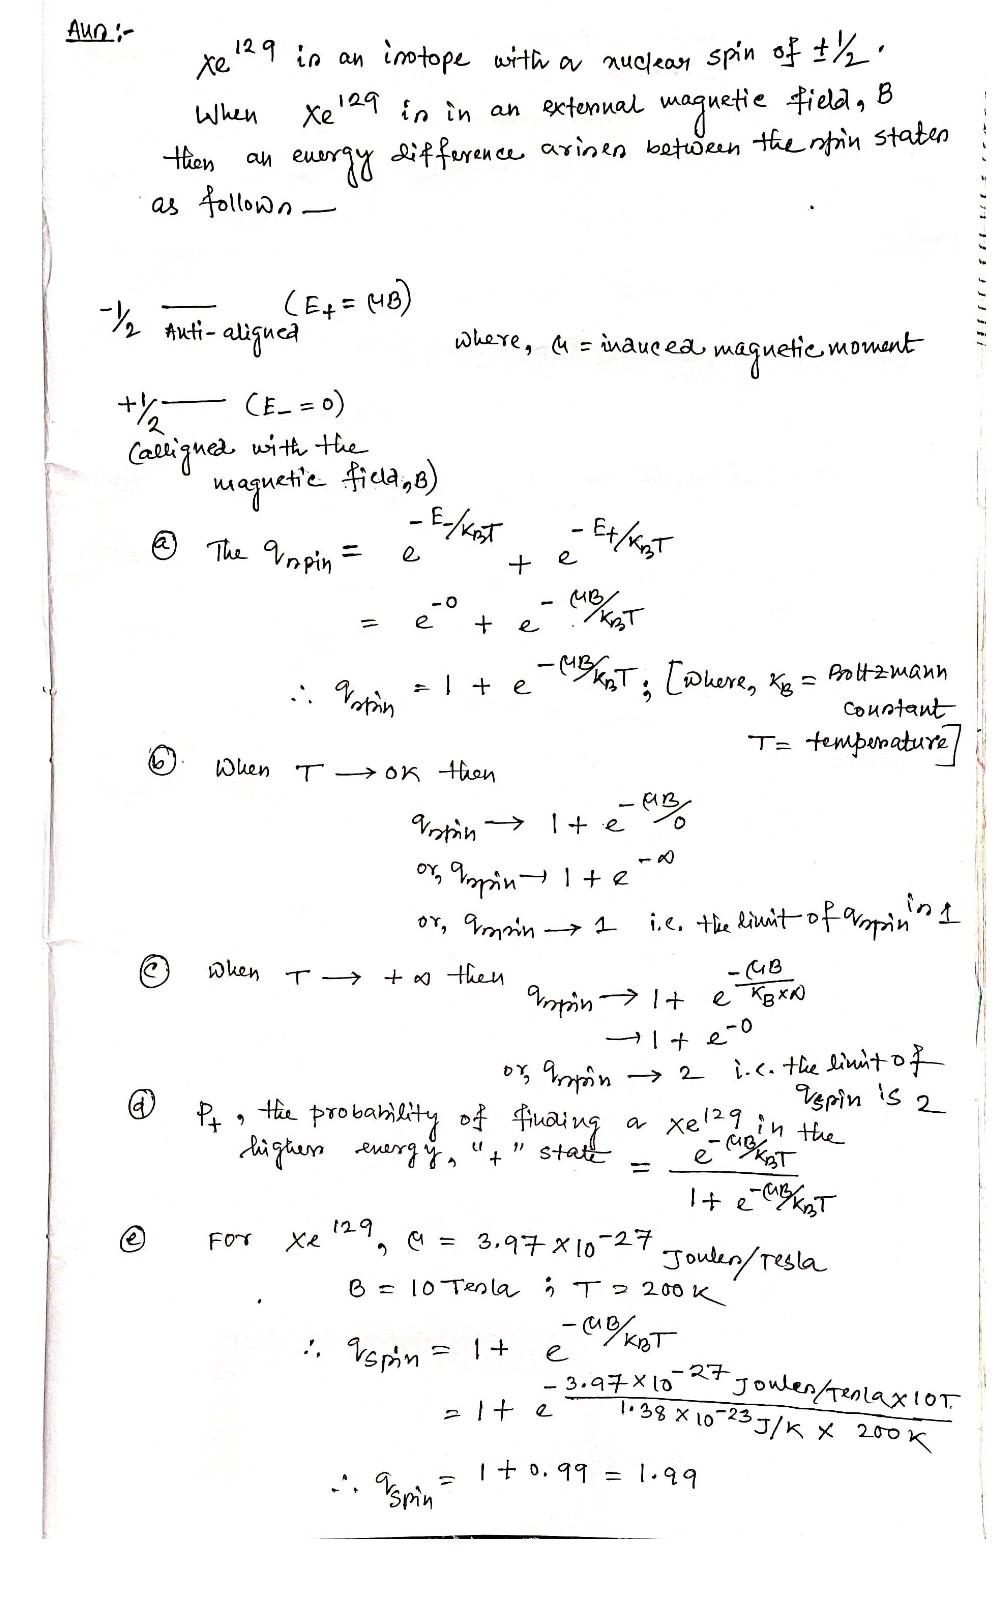 Ans:-
Xe¹²⁹ is an isotope with a nuclear spin of ±1/2.
When Xe¹²⁹ is in an external magnetic field, B
then an energy difference arises between the spin states
as follows —
-1/2 — (E₊ = μB)
Anti-aligned
where, μ = induced magnetic moment
+1/2 — (E₋ = 0)
(alligned with the
magnetic field, B)
(a) The q_spin = e^(-E₋/K_BT) + e^(-E₊/K_BT)
= e^(-0) + e^(-μB/K_BT)
∴ q_spin = 1 + e^(-μB/K_BT); [where, K_B = Boltzmann
constant
T = temperature]
(b) When T → 0K then
q_spin → 1 + e^(-μB/0)
or, q_spin → 1 + e^(-∞)
or, q_spin → 1 i.e. the limit of q_spin is 1
(c) When T → +∞ then q_spin → 1 + e^(-μB/K_B×∞)
→ 1 + e^(-0)
or, q_spin → 2 i.e. the limit of
q_spin is 2
(d) P₊, the probability of finding a Xe¹²⁹ in the
higher energy, "+" state = e^(-μB/K_BT) / 1 + e^(-μB/K_BT)
(e) For Xe¹²⁹, μ = 3.97 × 10⁻²⁷ Joules/Tesla
B = 10 Tesla ; T = 200 K
∴ q_spin = 1 + e^(-μB/K_BT)
= 1 + e^(-3.97×10⁻²⁷ Joules/Tesla × 10T. / 1.38 × 10⁻²³ J/K × 200K)
∴ q_spin = 1 + 0.99 = 1.99